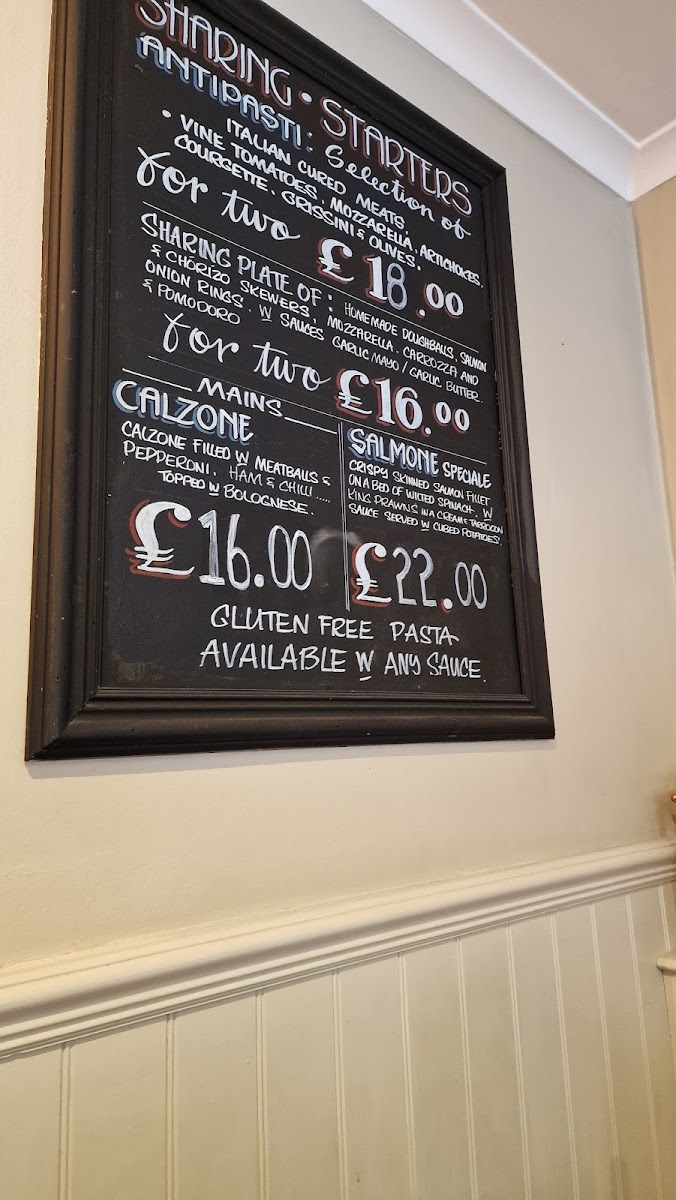 SHARING • STARTERS
ANTIPASTI: Selection of
ITALIAN CURED MEATS,
• VINE TOMATOES, MOZZARELLA, ARTICHOKES,
COURGETTE, GRISSINI & OLIVES.
for two £18.00
SHARING PLATE OF: HOMEMADE DOUGHBALLS, SALMON
& CHORIZO SKEWERS, MOZZARELLA. CARROZZA AND
ONION RINGS. W SAUCES GARLIC MAYO / GARLIC BUTTER
& POMODORO
for two £16.00
MAINS
CALZONE
CALZONE FILLED W MEATBALLS &
PEPPERONI, HAM & CHILLI.....
TOPPED W BOLOGNESE.
£16.00
SALMONE SPECIALE
CRISPY SKINNED SALMON FILLET
ON A BED OF WILTED SPINACH, W
KING PRAWNS IN A CREAM & TARRAGON
SAUCE SERVED W CUBED POTATOES.
£22.00
GLUTEN FREE PASTA
AVAILABLE W ANY SAUCE.